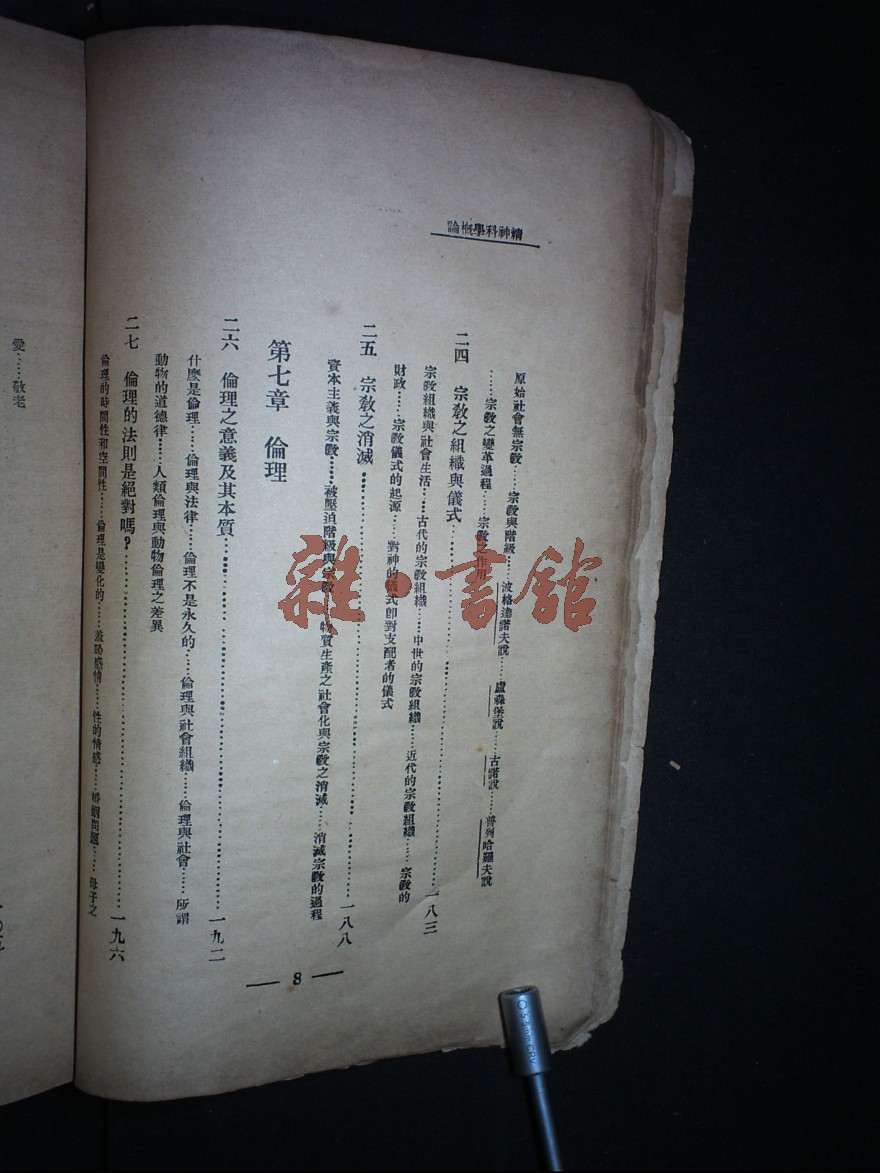 精神科學概論
原始社會無宗教……宗教與階級……波格達諾夫說……盧森堡說……古諾說……普列哈羅夫說
……宗教之變革過程……宗教之作用
二四 宗教之組織與儀式……一八三
宗教組織與社會生活……古代的宗教組織……中世的宗教組織……近代的宗教組織……宗教的
財政……宗教儀式的起源……對神的儀式卽對支配者的儀式
二五 宗教之消滅……一八八
資本主義與宗教……被壓迫階級與宗教……物質生產之社會化與宗教之消滅……消滅宗教的過程
第七章 倫理
二六 倫理之意義及其本質……一九二
什麼是倫理……倫理與法律……倫理不是永久的……倫理與社會組織……倫理與社會……所謂
動物的道德律……人類倫理與動物倫理之差異
二七 倫理的法則是絕對嗎?……一九六
倫理的時間性和空間性……倫理是變化的……羞恥感情……性的情感……婚姻問題……母子之
— 8 —
愛……敬老
雜·書館